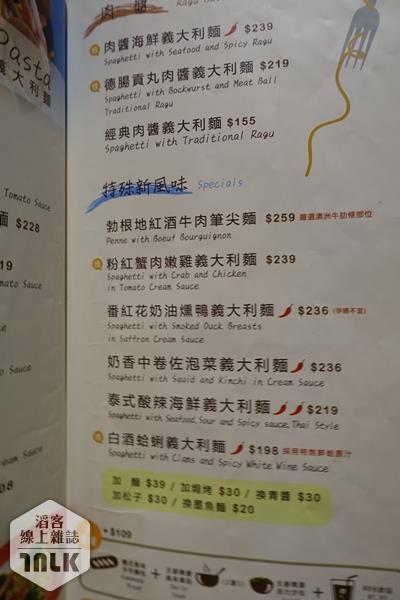 Pasta
義大利麵
Tomato Sauce
麵 $228
肉醬
肉醬海鮮義大利麵 $239
Spaghetti with Seafood and Spicy Ragu
德腸貢丸肉醬義大利麵 $219
Spaghetti with Bockwurst and Meat Ball
Traditional Ragu
經典肉醬義大利麵 $155
Spaghetti with Traditional Ragu
特殊新風味 Specials
勃根地紅酒牛肉筆尖麵 $259 嚴選澳洲牛肋條部位
Penne with Boeuf Bourguignon
粉紅蟹肉嫩雞義大利麵 $239
Spaghetti with Crab and Chicken
in Tomato Cream Sauce
番紅花奶油燻鴨義大利麵 $236 (孕婦不宜)
Spaghetti with Smoked Duck Breasts
in Saffron Cream Sauce
奶香中卷佐泡菜義大利麵 $236
Spaghetti with Squid and Kimchi in Cream Sauce
泰式酸辣海鮮義大利麵 $219
Spaghetti with Seafood, Sour and Spicy sauce, Thai Style
白酒蛤蜊義大利麵 $198 採用特熬鮮蛤原汁
Spaghetti with Clams and Spicy White Wine Sauce
加 麵 $39 / 加焗烤 $30 / 換青醬 $30
加松子 $30 / 換墨魚麵 $20
+ $109
滔客
線上雜誌
TALK